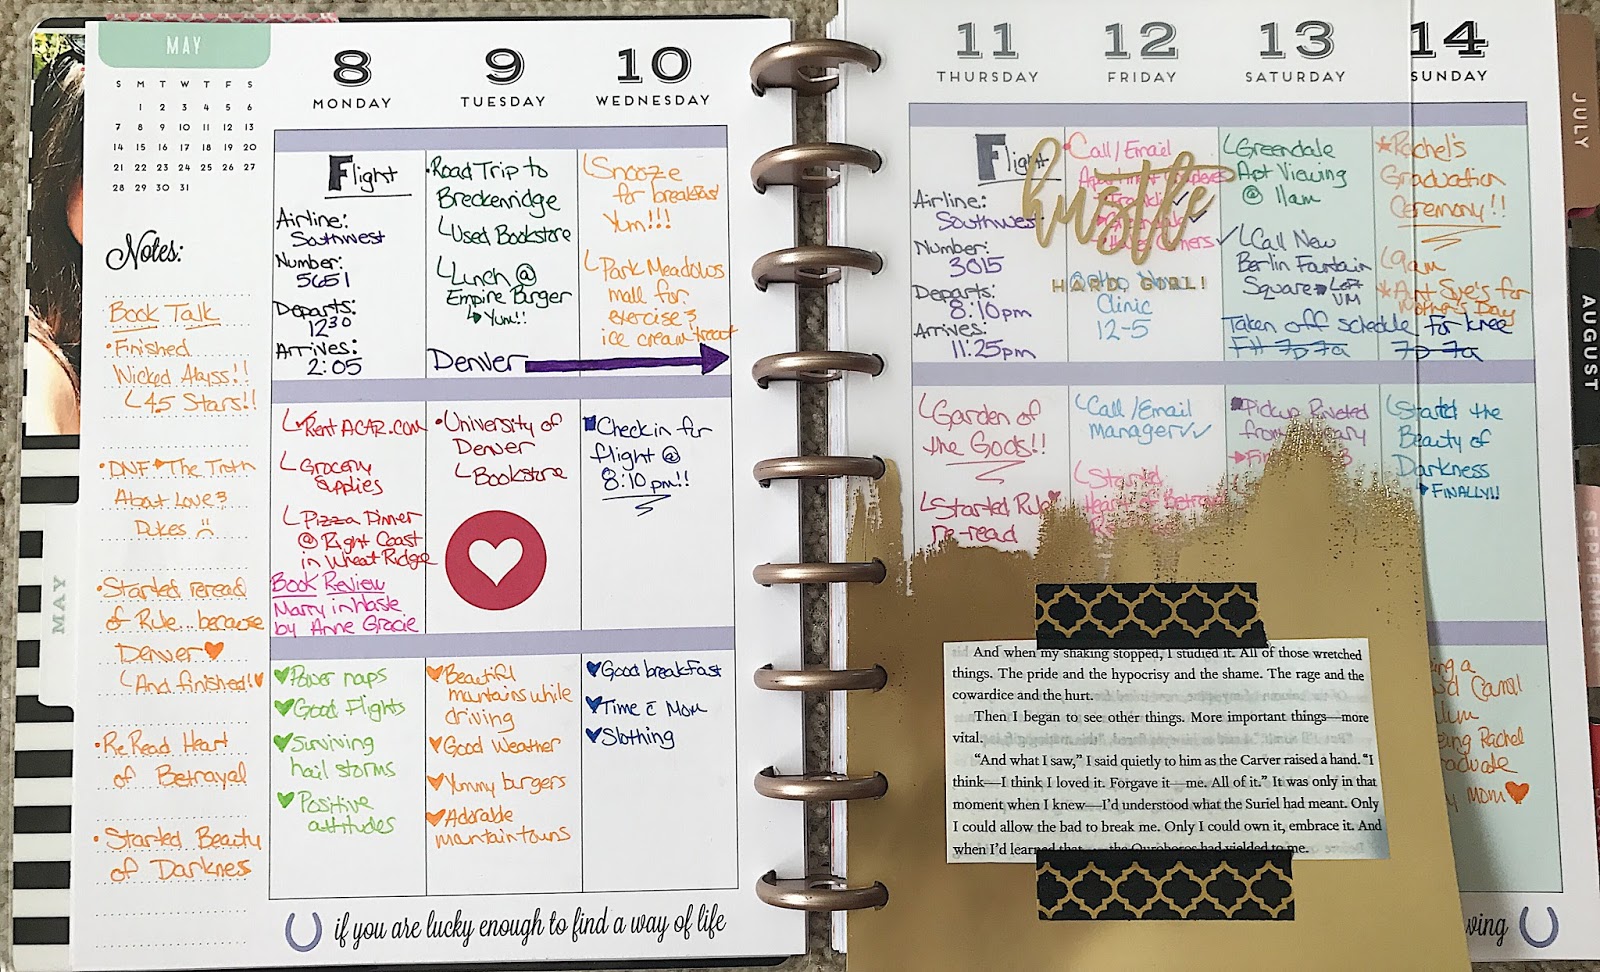 MAY
S M T W T F S
1 2 3 4 5 6
7 8 9 10 11 12 13
14 15 16 17 18 19 20
21 22 23 24 25 26 27
28 29 30 31
Notes:
Book Talk
• Finished
Wicked Abyss!!
4.5 Stars!!
• DNF The Truth
About Love &
Dukes
• Started reread
of Rule... because
Denver
And finished!
• ReRead Heart
of Betrayal
• Started Beauty
of Darkness
MAY
8
MONDAY
Flight
Airline:
Southwest
Number:
5651
Departs:
12:30
Arrives:
2:05
Rent ACAR.com
Grocery
Supplies
Pizza Dinner
@ Right Coast
in Wheat Ridge
Book Review
Marry in Haste
by Anne Gracie
Power naps
Good Flights
Surviving
hail storms
Positive
attitudes
9
TUESDAY
• Road Trip to
Breckenridge
Used Bookstore
Lunch @
Empire Burger
Yum!!
Denver
• University of
Denver
Bookstore
Beautiful
mantains while
driving
Good Weather
Yummy burgers
Adorable
mantain towns
10
WEDNESDAY
Snooze
for breakfast
Yum!!!
Park Meadows
mall for
exercise &
ice cream treat
Check in for
flight @
8:10pm!!
Good breakfast
Time c̄ Mom
Slothing
if you are lucky enough to find a way of life
11
THURSDAY
Flight
Airline:
Southwest
Number:
3015
Departs:
8:10pm
Arrives:
11:25pm
Garden of
the Gods!!
Started Rule
re-read
12
FRIDAY
• Call/Email
hustle
HARD, GIRL!
Clinic
12-5
Call/Email
manager
Started
Heart of Betrayal
13
SATURDAY
Greendale
Apt Viewing
@ 11am
Call New
Berlin Fountain
Square Left
VM
Taken off schedule for knee
7p-7a
Pickup Riveted
from
14
SUNDAY
Rachel's
Graduation
Ceremony!!
9am
Aunt Sye's for
Mother's Day
7p-7a
Started the
Beauty of
Darkness
FINALLY!!
Carroll
Rachel
Mom
And when my shaking stopped, I studied it. All of those wretched
things. The pride and the hypocrisy and the shame. The rage and the
cowardice and the hurt.
Then I began to see other things. More important things—more
vital.
“And what I saw,” I said quietly to him as the Carver raised a hand. “I
think—I think I loved it. Forgave it—me. All of it.” It was only in that
moment when I knew—I’d understood what the Suriel had meant. Only
I could allow the bad to break me. Only I could own it, embrace it. And
when I’d learned that the Ouroboros had yielded to me.
JULY
AUGUST
SEPTEMBER